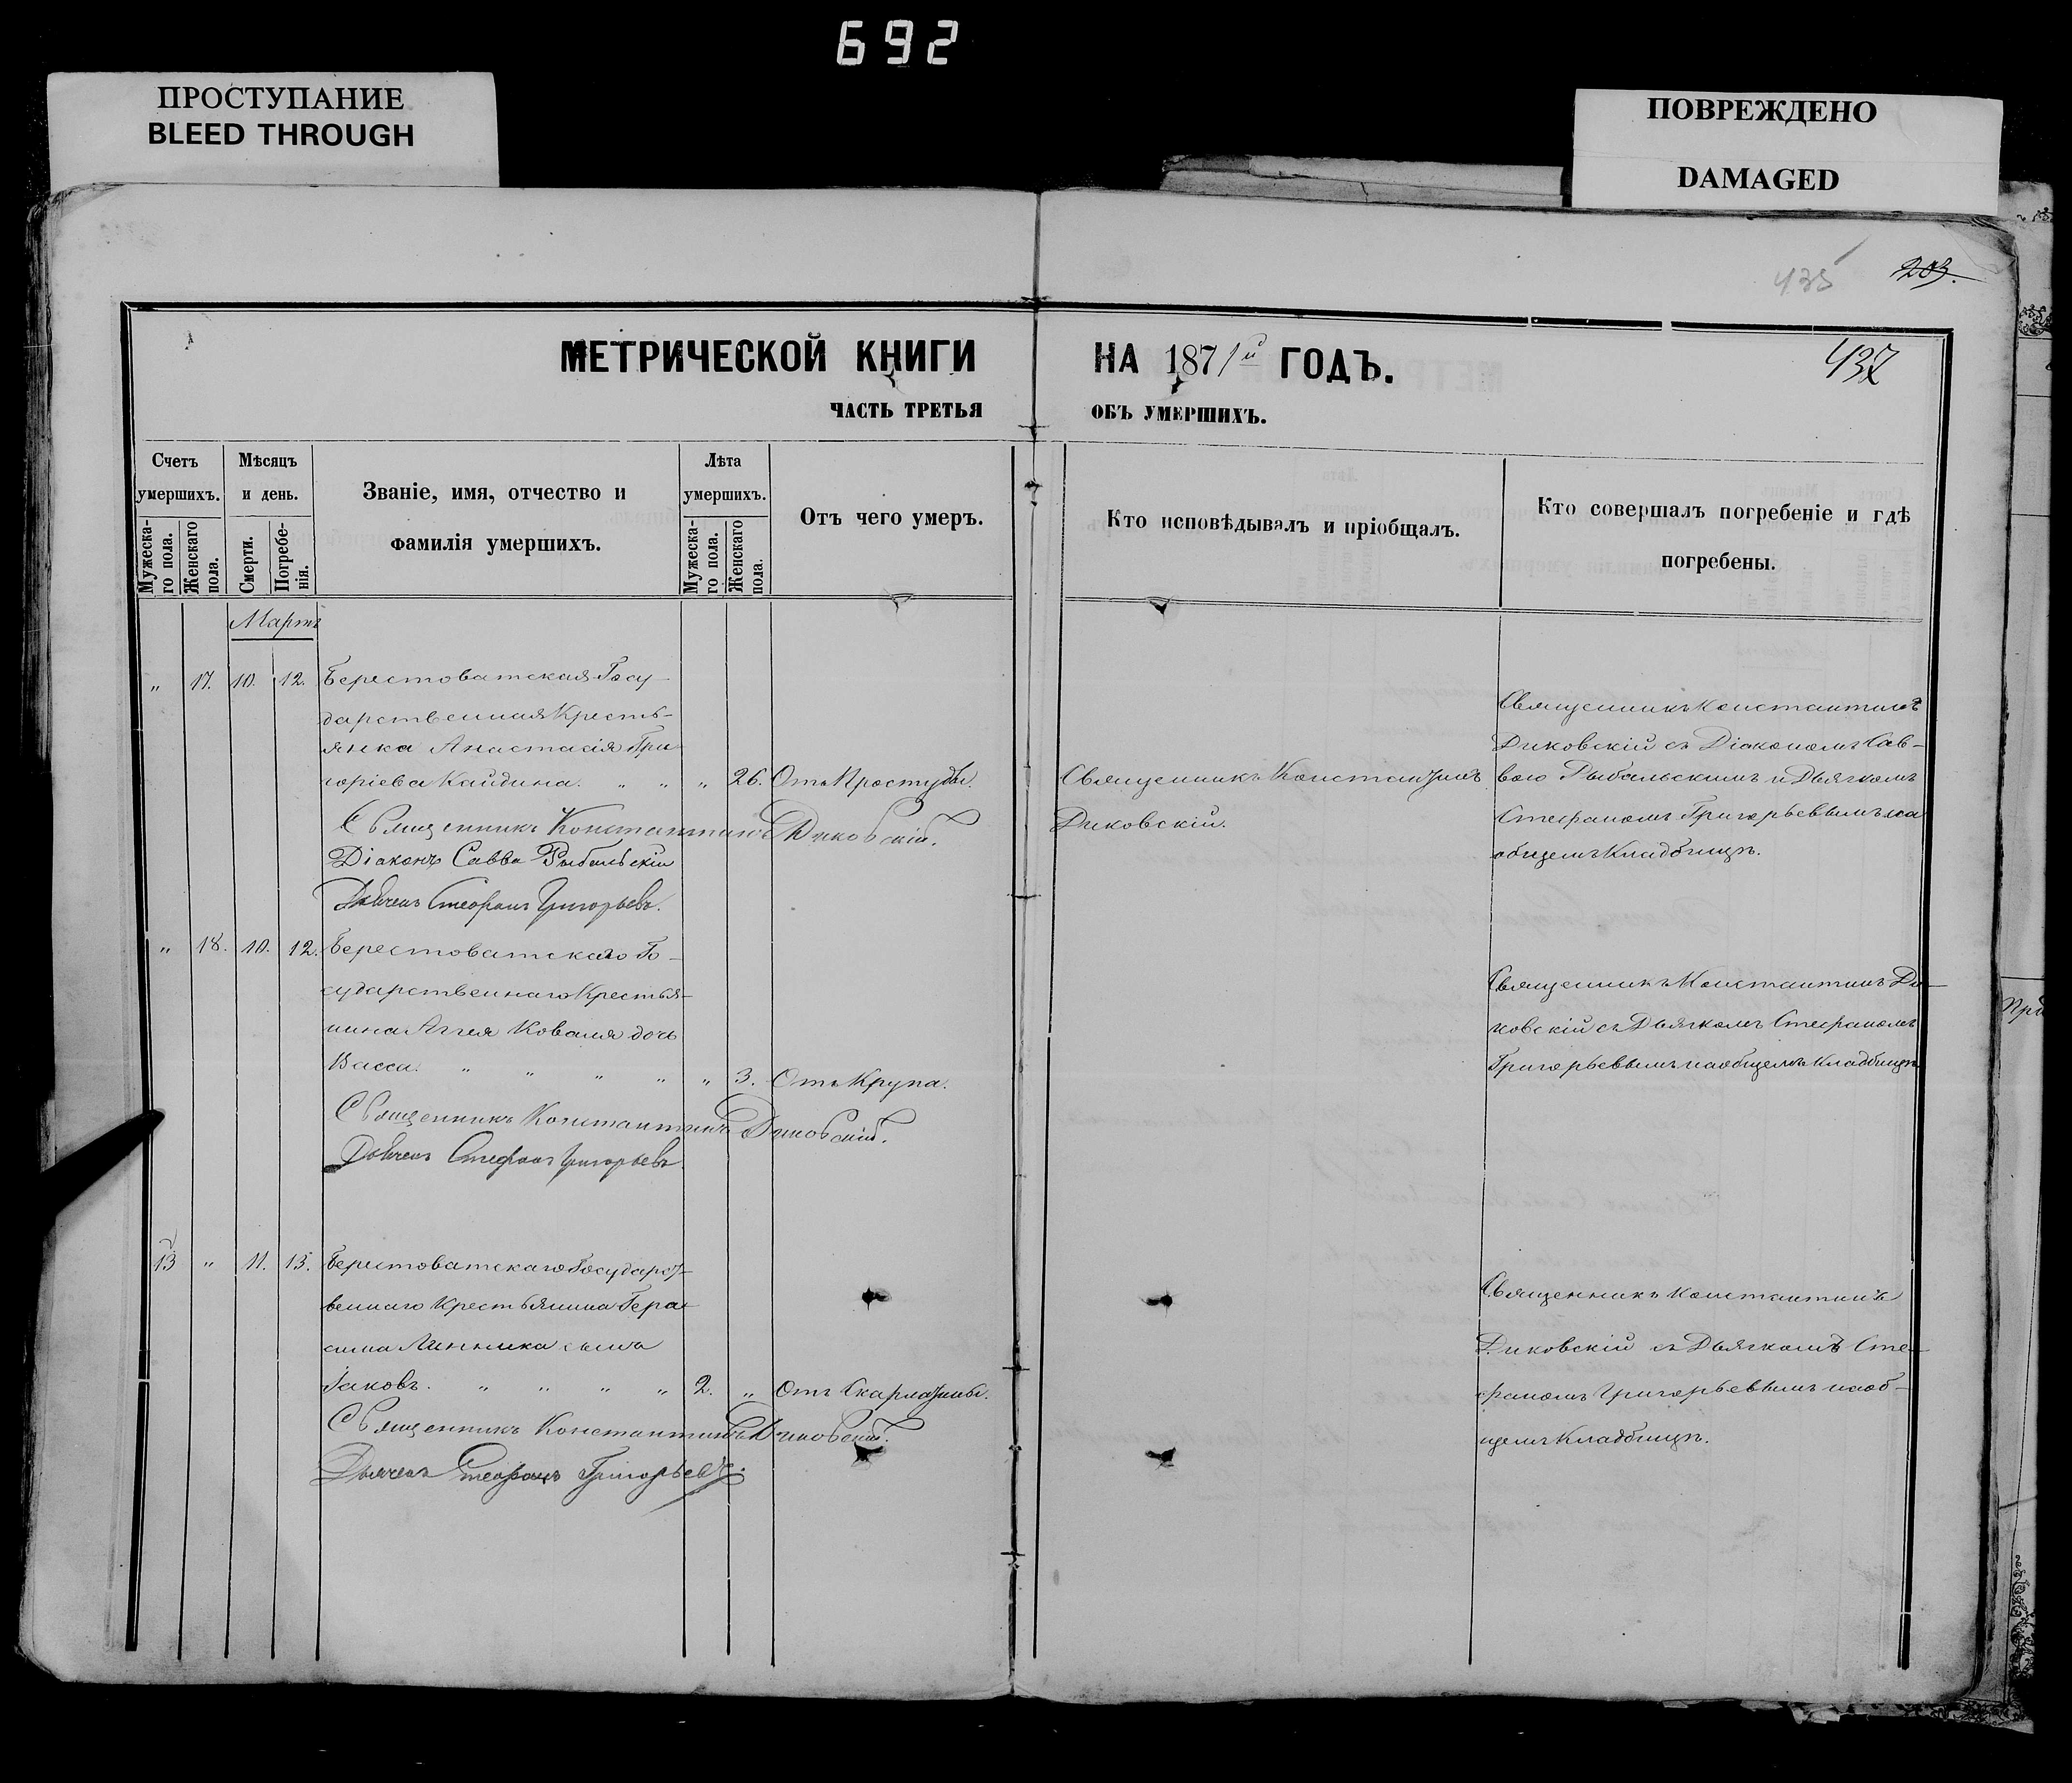 692
ПРОСТУПАНИЕ
BLEED THROUGH
ПОВРЕЖДЕНО
DAMAGED
435
203.
МЕТРИЧЕСКОЙ КНИГИ НА 1871й ГОДЪ.
437
ЧАСТЬ ТРЕТЬЯ ОБЪ УМЕРШИХЪ.
Счетъ умершихъ.
Мужеска-го пола.
Женскаго пола.
Мѣсяцъ и день.
Смерти.
Погребе-нія.
Званіе, имя, отчество и
фамилія умершихъ.
Лѣта умершихъ.
Мужеска-го пола.
Женскаго пола.
Отъ чего умеръ.
Кто исповѣдывалъ и пріобщалъ.
Кто совершалъ погребеніе и гдѣ
погребены.
Мартъ
" 17. 10. 12. Берестоватская Госу-
дарственная Кресть-
янка Анастасія Гри
горіева Кайдина. " " " 26. Отъ Простуды.
Священникъ Константинъ Диковскій.
Діаконъ Савва Рыбальскій
Дьячекъ Стефанъ Григорьевъ.
Священникъ Константинъ
Диковскій.
Священникъ Константинъ
Диковскій съ Діакономъ Сав-
вою Рыбальскимъ и Дьячкомъ
Стефаномъ Григорьевымъ на
общемъ Кладбищѣ.
" 18. 10. 12. Берестоватскаго Го-
сударственнаго Крестья-
нина Аггея Коваля дочь
Васса. " " " " " 3. Отъ Крупа.
Священникъ Константинъ Диковскій.
Дьячекъ Стефанъ Григорьевъ
Священникъ Константинъ Ди-
ковскій съ Дьячкомъ Стефаномъ
Григорьевымъ на общемъ Кладбищѣ
13 " 11. 13. Берестоватскаго Государст-
веннаго Крестьянина Гера-
сима Линника сынъ
Іаковъ. " " " " 2. " Отъ Скарлатины.
Священникъ Константинъ Диковскій.
Дьячекъ Стефанъ Григорьевъ.
Священникъ Константинъ
Диковскій съ Дьячкомъ Сте-
фаномъ Григорьевымъ на об-
щемъ Кладбищѣ.